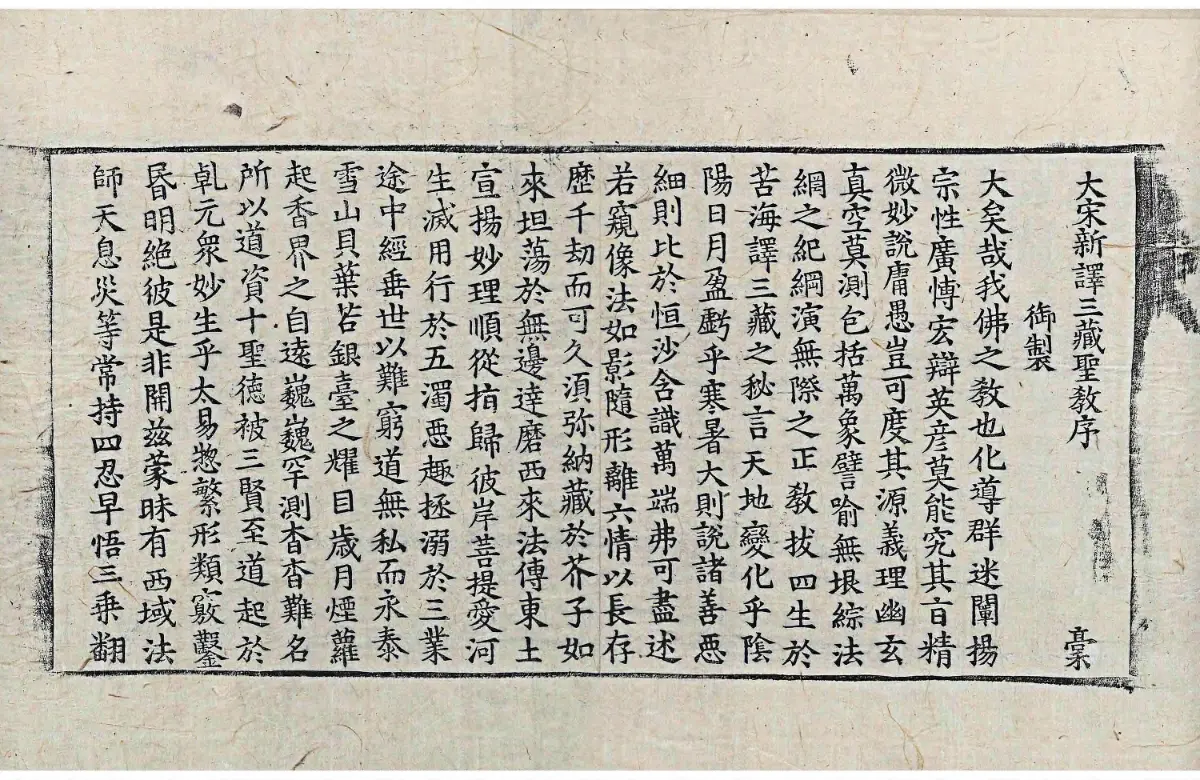 大宋新譯三藏聖教序 橐
御製
大矣哉我佛之教也化導群迷闡揚
宗性廣博宏辯英彥莫能究其旨精
微妙說庸愚豈可度其源義理幽玄
真空莫測包括萬象譬喻無垠綜法
網之紀綱演無際之正教拔四生於
苦海譯三藏之秘言天地變化乎陰
陽日月盈虧乎寒暑大則說諸善惡
細則比於恒沙含識萬端弗可盡述
若窺像法如影隨形離六情以長存
歷千劫而可久須弥納藏於芥子如
來坦蕩於無邊達磨西來法傳東土
宣揚妙理順從指歸彼岸菩提愛河
生滅用行於五濁惡趣拯溺於三業
途中經垂世以難窮道無私而永泰
雪山貝葉若銀臺之耀目歲月煙蘿
起香界之自遠巍巍罕測杳杳難名
所以道資十聖德被三賢至道起於
乹元衆妙生乎太易惣繁形類竅鑿
昬明絕彼是非開兹蒙昧有西域法
師天息災等常持四忍早悟三乗翻